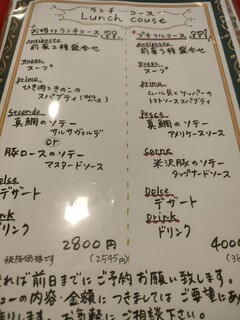 ランチ コース
Lunch couse
お手軽なランチコース
Antipasto
前菜2種盛合せ
zuppa
スープ
primo
ひき肉ときのこの
スパゲティ
Secondo
真鯛のソテー
サルサヴェルデ
or
豚ロースのソテー
マスタードソース
Dolce
デザート
Drink
ドリンク
2800円
税抜価格です (2545円)
プチフルコース
Antipasto
前菜3種盛合せ
zuppa
スープ
primo
ムール貝とケッパーの
トマトソーススパゲティ
Pesce
真鯛のソテー
アメリケーヌソース
Carne
米沢豚のソテー
タップナードソース
Dolce
デザート
Drink
ドリンク
れば前日までにご予約お願い致します。
ューの内容・金額につきましてはご要望に
お気軽にご相談下さい